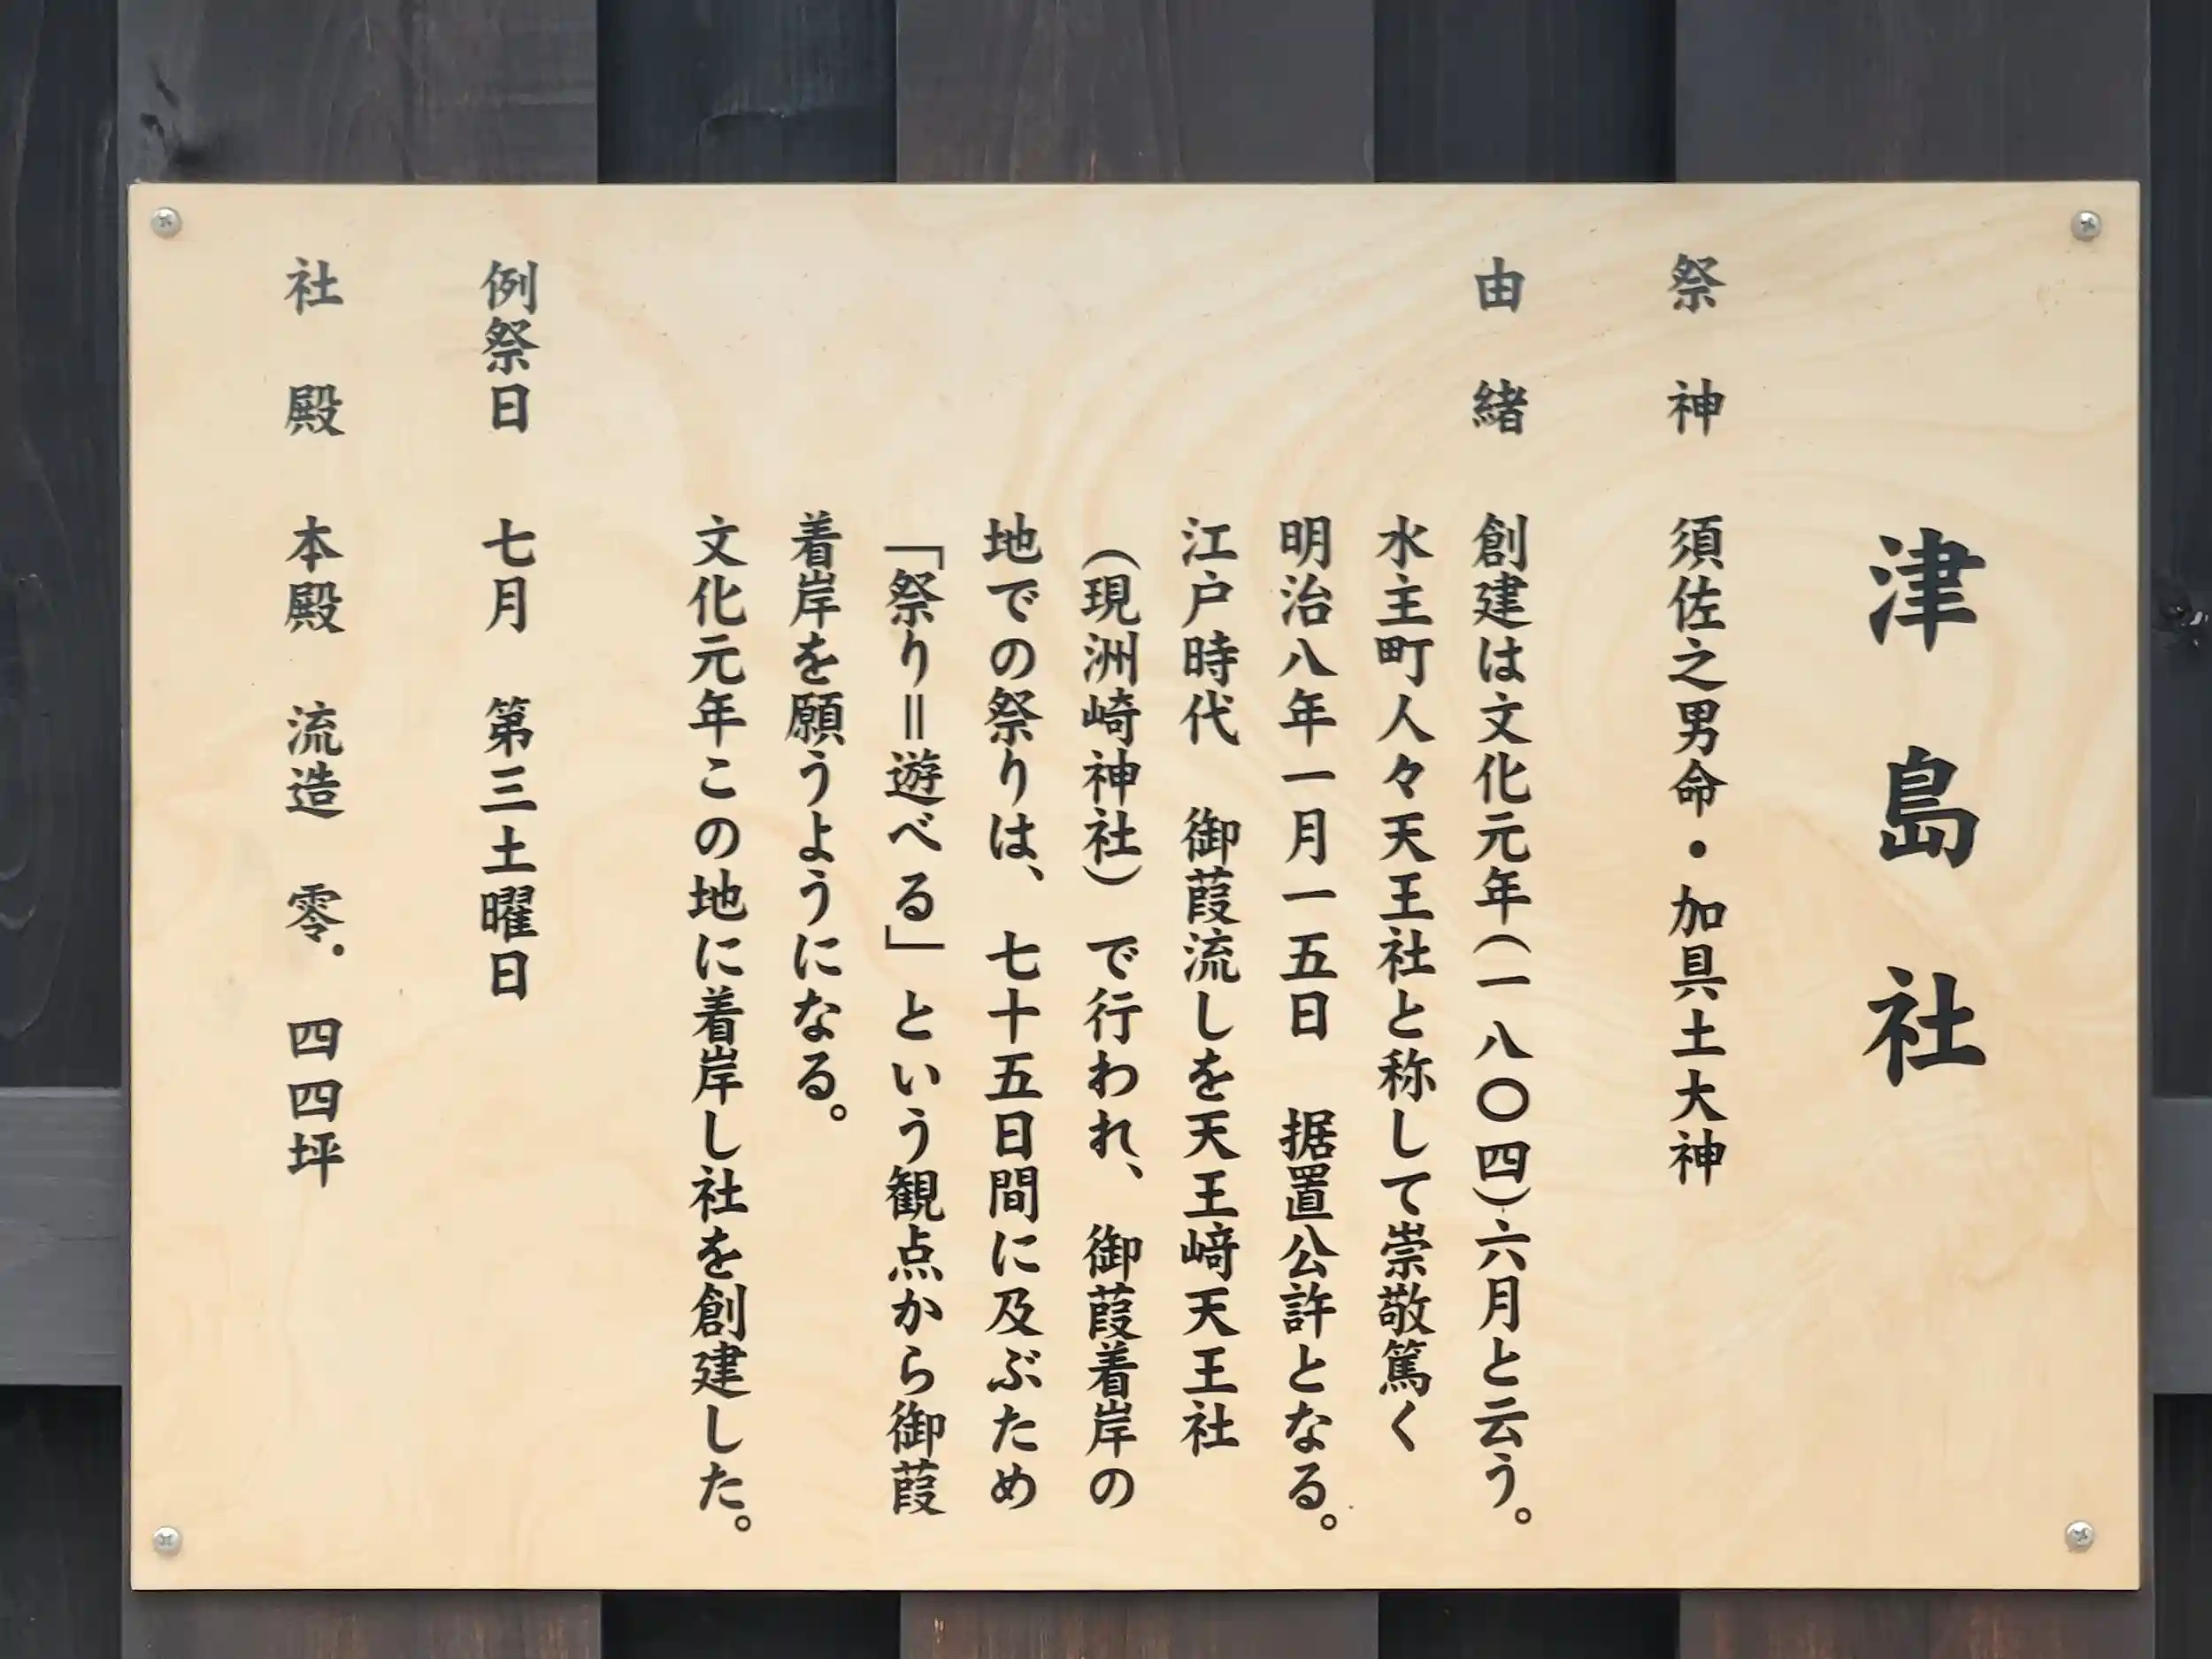 津島社
祭神　須佐之男命・加具土大神
由緒　創建は文化元年(一八〇四)六月と云う。
水主町人々天王社と称して崇敬篤く
明治八年一月一五日　据置公許となる。
江戸時代　御葭流しを天王﨑天王社
(現洲崎神社)で行われ、御葭着岸の
地での祭りは、七十五日間に及ぶため
「祭り＝遊べる」という観点から御葭
着岸を願うようになる。
文化元年この地に着岸し社を創建した。
例祭日　七月　第三土曜日
社殿　本殿　流造　零．四四坪